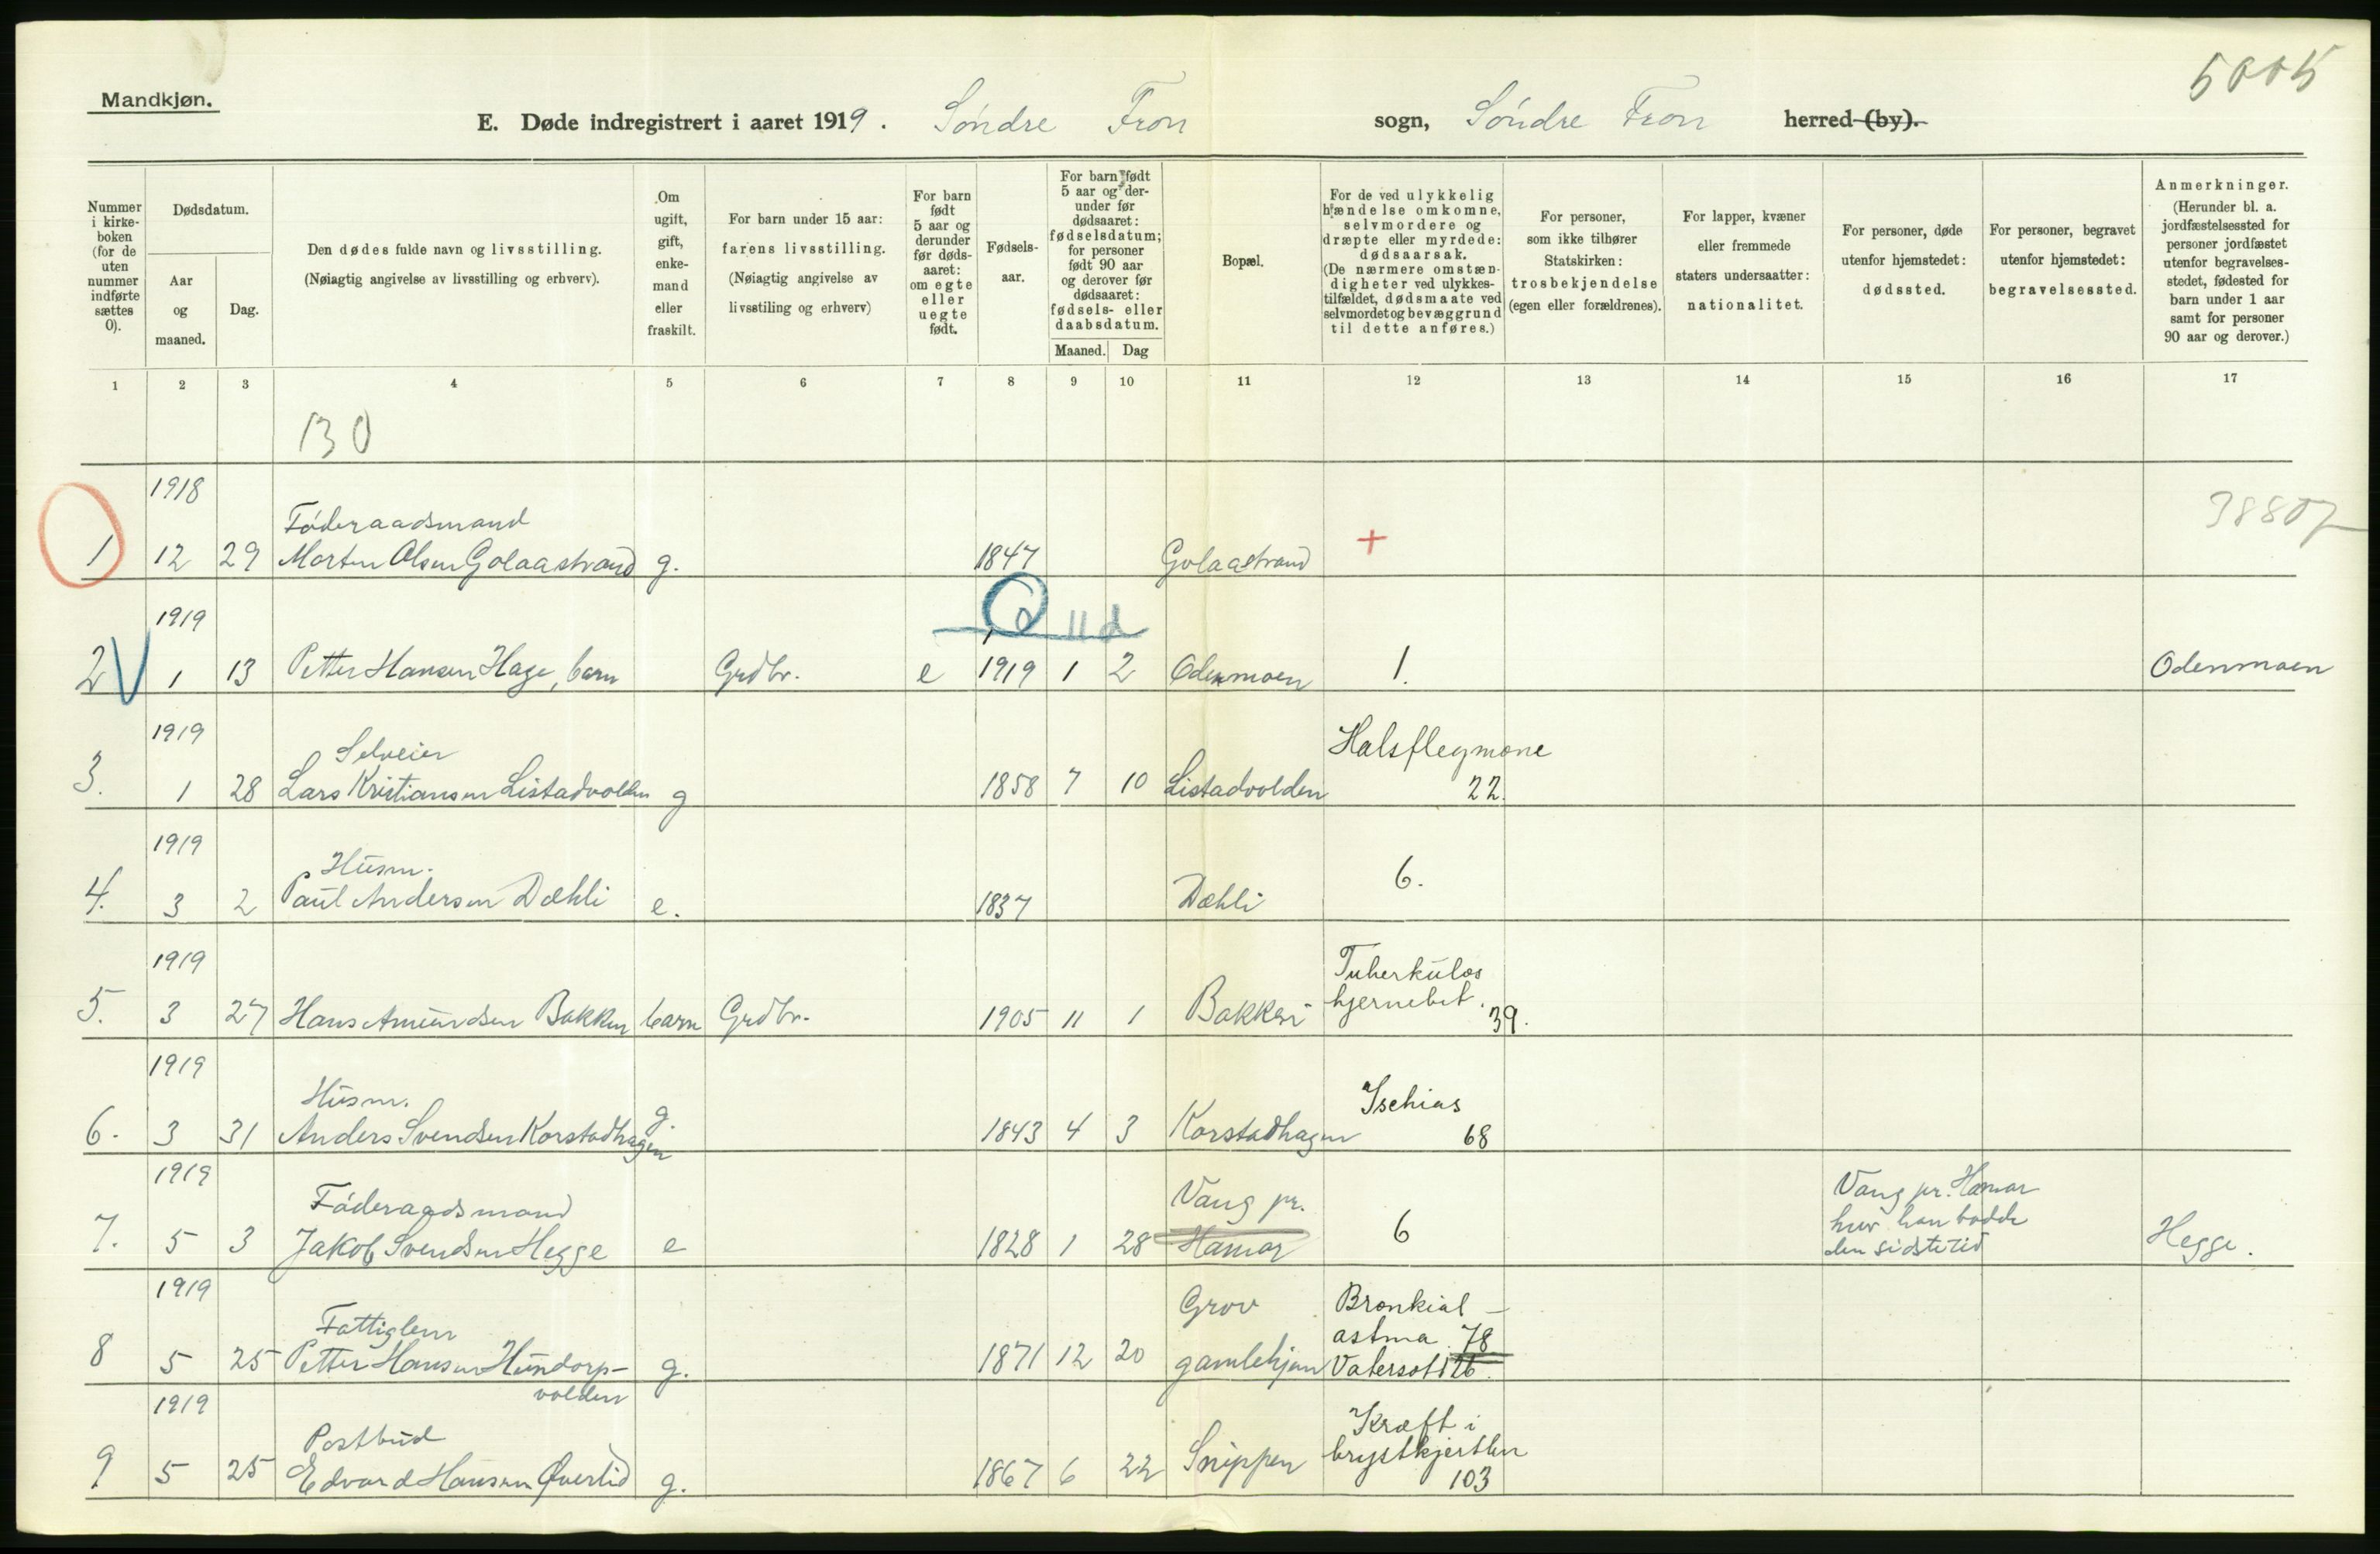 5005
Mandkjøn.
E. Døde indregistrert i aaret 1919. Søndre Fron sogn, Søndre Fron herred (by).
Nummer i kirke-boken (for de uten nummer indførte sættes 0).
Dødsdatum.
Aar og maaned.
Dag.
Den dødes fulde navn og livsstilling.
(Nøiagtig angivelse av livsstilling og erhverv).
Om ugift, gift, enke-mand eller fraskilt.
For barn under 15 aar:
farens livsstilling.
(Nøiagtig angivelse av livsstiling og erhverv)
For barn født 5 aar og derunder før døds-aaret: om egte eller uegte født.
Fødsels-aar.
For barn født 5 aar og der-under før dødsaaret: fødselsdatum; for personer født 90 aar og derover før dødsaaret: fødsels- eller daabsdatum.
Maaned. Dag
Bopæl.
For de ved ulykkelig hændelse omkomne, selvmordere og dræpte eller myrdede: dødsaarsak.
(De nærmere omstæn-digheter ved ulykkes-tilfældet, dødsmaate ved selvmordet og bevæggrund til dette anføres.)
For personer, som ikke tilhører Statskirken: trosbekjendelse (egen eller forældrenes).
For lapper, kvæner eller fremmede staters undersaatter: nationalitet.
For personer, døde utenfor hjemstedet: dødssted.
For personer, begravet utenfor hjemstedet: begravelsessted.
Anmerkninger.
(Herunder bl. a. jordfæstelsessted for personer jordfæstet utenfor begravelses-stedet, fødested for barn under 1 aar samt for personer 90 aar og derover.)
1 2 3 4 5 6 7 8 9 10 11 12 13 14 15 16 17
130
1918
Føderaadsmand
1 12 29 Morten Olsen Golaastrand g. 1847 Golaastrand +
1919
11 d
2 V 1 13 Petter Hansen Hage, barn Grdbr. e 1919 1 2 Odenmoen 1. Odenmoen
1919
Selveier Halsflegmone
3. 1 28 Lars Kristiansen Listadvolden g 1858 7 10 Listadvolden 22.
1919
Husm.
4. 3 2 Paul Andersen Dæhli e. 1837 Dæhli 6.
1919
Tuberkuløs
hjernebet.
5. 3 27 Hans Amundsen Bakken barn Grdbr. 1905 11 1 Bakken 39.
1919
Husm. Ischias
6. 3 31 Anders Svendsen Korstadhagen g. 1843 4 3 Korstadhagen 68
1919
Føderaadsmand Vang pr.
7. 5 3 Jakob Svendsen Hegge e 1828 1 28 Hamar 6 Vang pr. Hamar
hvor han bodde
den sidste tid Hegge.
1919
Fattiglem Grov Bronkial-
astma 78
8 5 25 Petter Hansen Hundorp- g. 1871 12 20 gamlehjem Vatersot 126.
volden
1919
Postbud Kræft i
brystkjertlen
9 5 25 Edvard Hansen Øverlid g. 1867 6 22 Snippen 103